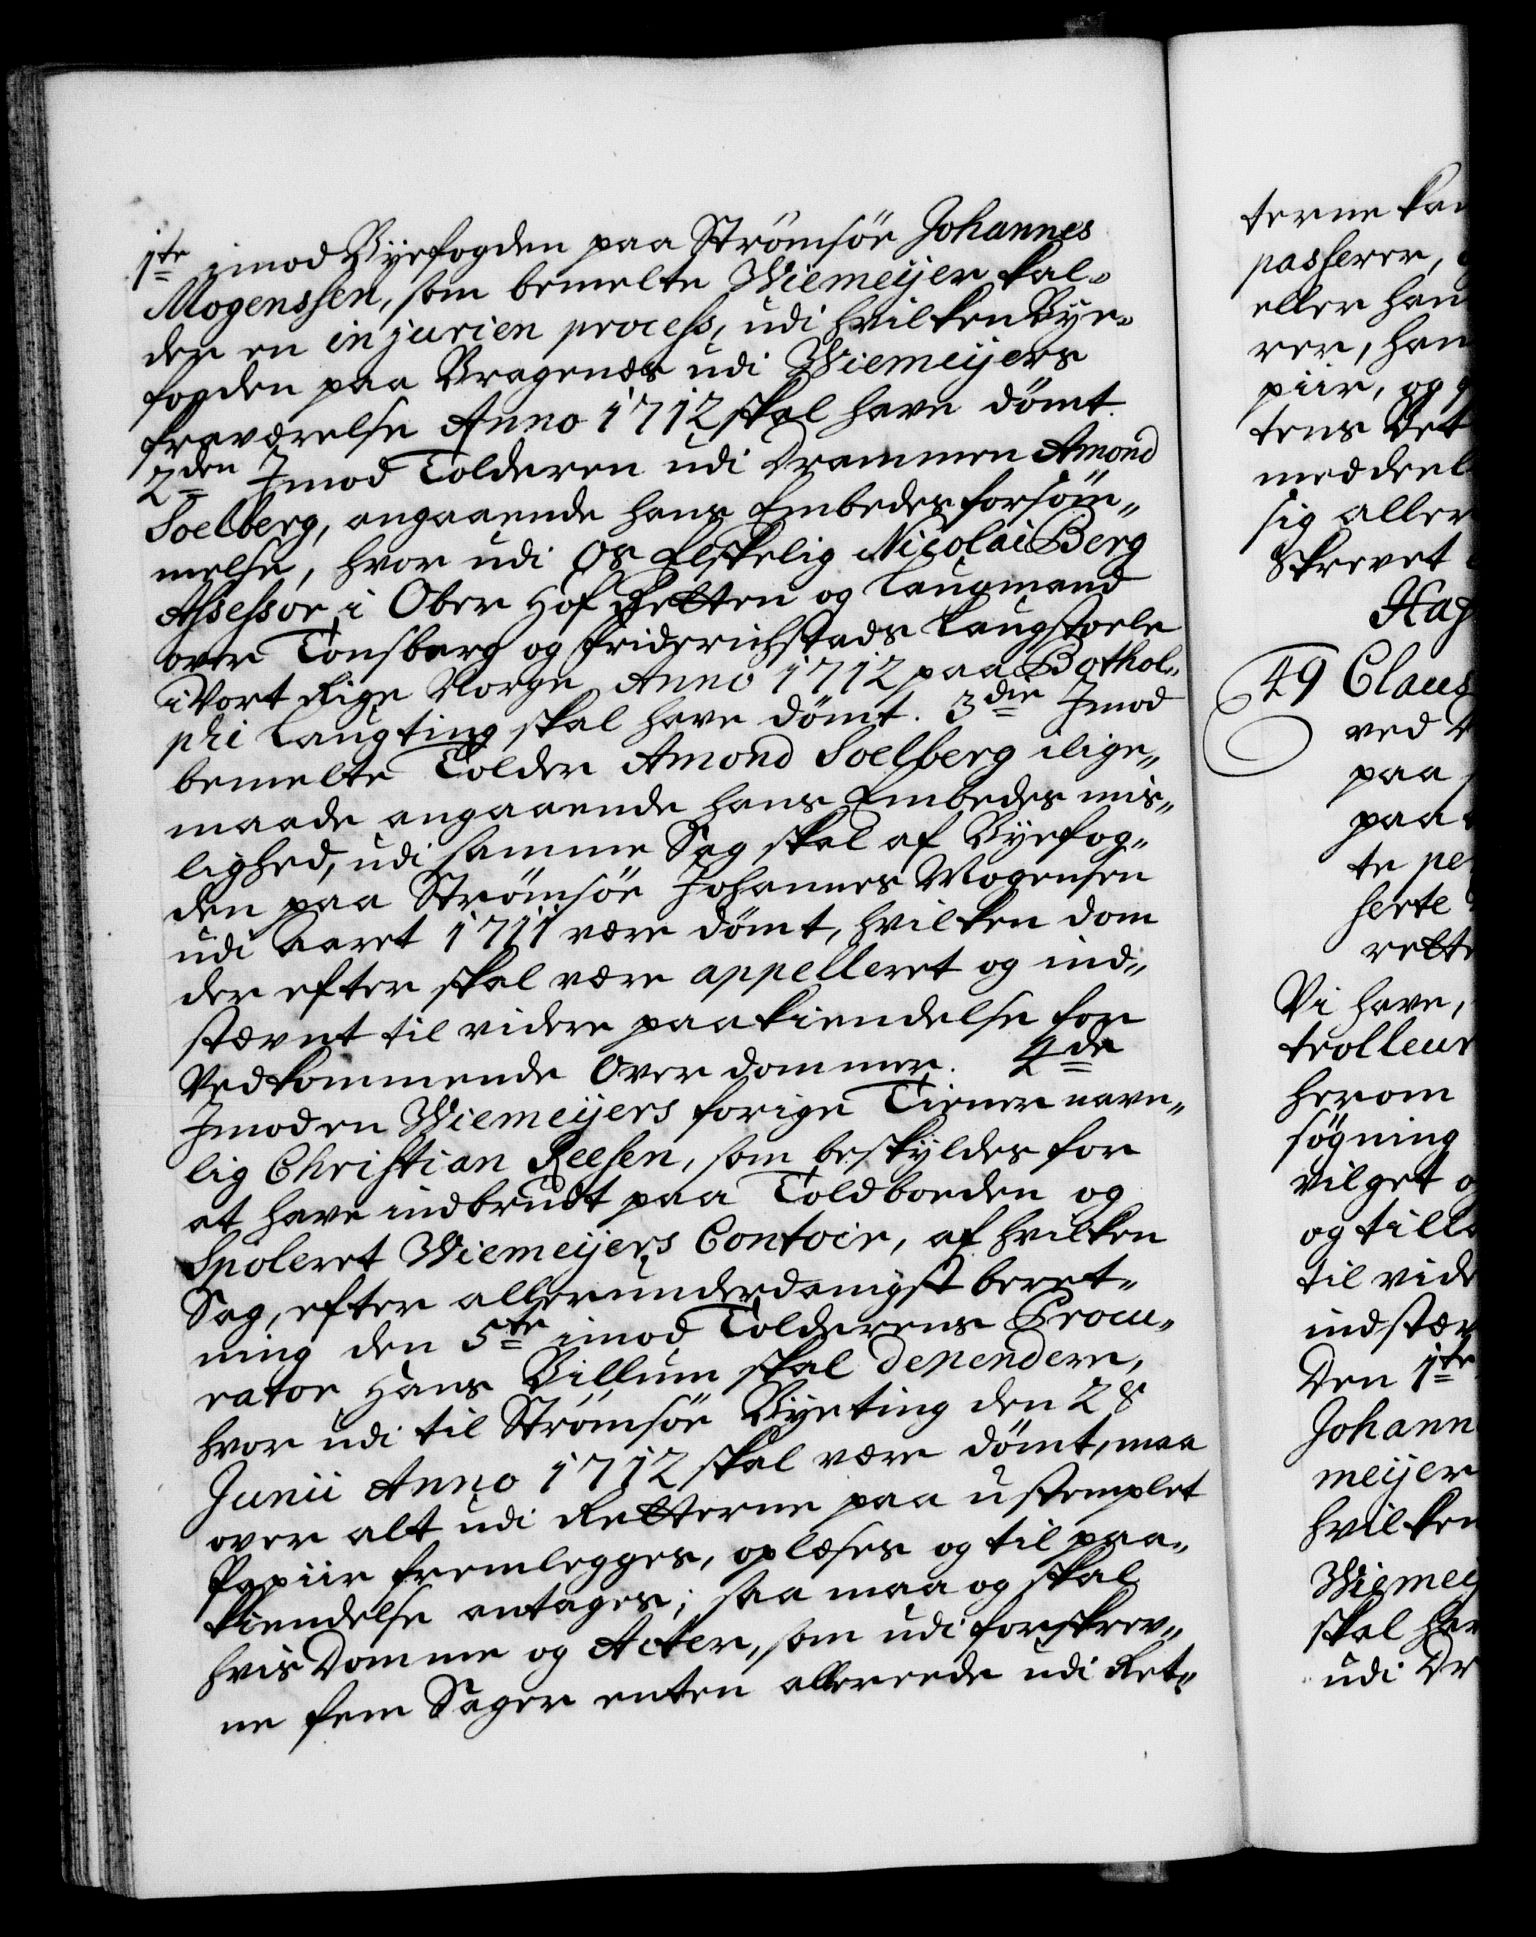 1te imod Byefogden paa Strømsöe Johannes
Mogenssen, som bemelte Wiemeijer kal-
der en injurien process, udi hvilken Bye-
fogden paa Bragenæs udi Wiemeijers
fraværelse Anno 1712 skal have dömt.
2den Imod Tolderen udi Drammen Amond
Soelberg, angaaende hans Embedes forsöm-
melse, hvor udi Os Elskelig Nicolai Berg
Assessor i Ober Hof Retten og Laugmand
over Tonsberg og Friderichstads Laugstoele
i Vort Rige Norge Anno 1712 paa Bothol-
phi Laugting skal have dömt. 3die Imod
bemelte Tolder Amond Soelberg ilige-
maade angaaende hans Embedes mis-
lighed, udi samme Sag skal af Byefog-
den paa Strömsöe Johannes Mogensen
udi Aaret 1711 være dömt, hvilken dom
der efter skal være appelleret og ind-
stævnt til videre paakiendelse for
Vedkommende Over dommer. 4de
Imod en Wiemeijers forige Tiener navn-
lig Christian Reesen, som beskyldes for
at have indbrudt paa Toldboeden og
Spoleret Wiemeijers Contoir, af hvilken
Sag, efter allerunderdanigst beret-
ning den 5te imod Tolderens Procu-
rator Hans Billum skal dependere,
hvor udi til Strömsöe Byeting den 28
Junii Anno 1712 skal være dömt, maa
over alt udi Retterne paa ustemplet
Papiir fremlegges, oplæses og til paa-
kiendelse antages; saa maa og skal
hvis Domme og Acter, som udi forskrev-
ne fem Sager enten allereede udi Ret-
terne kan
passerer,
eller han
rer, han
piir, og
tens Det
meddeel
sig aller
Skrevet
Haf
49 Claus
ved D
paa
paa
te pe
serte
rette
Vi have,
trolleur
herom
søgning
vilget o
og till
til vide
indstæv
Den 1te
Johann
meijer
hvilken
Wiemeij
skal hav
udi Dr